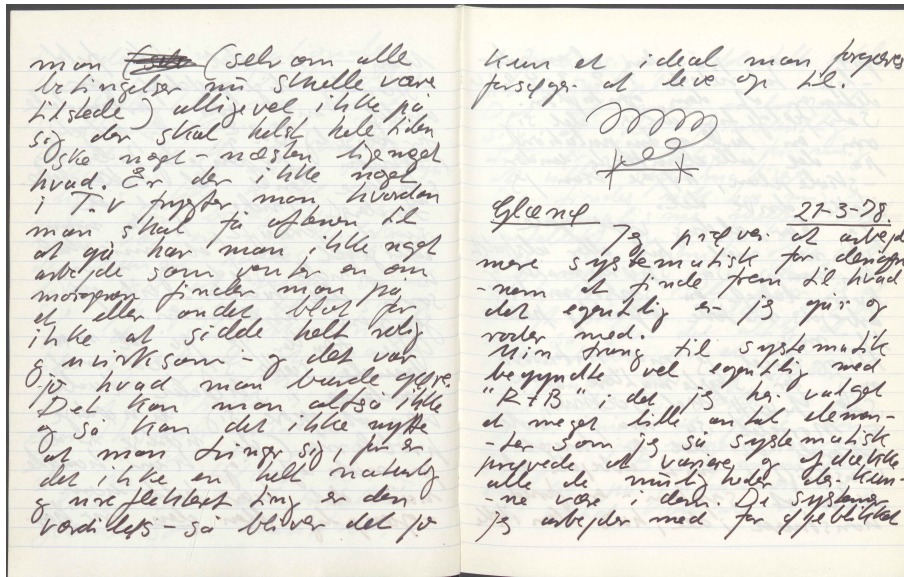 man (selv om alle
betingelser nu skulle være
tilstede) alligevel ikke på
sig der skal helst hele tiden
ske noget - næsten ligegyldigt
hvad. Er der ikke noget
i T.V frygter man hvordan
man skal få aftenen til
at gå har man ikke noget
arbejde som venter en om
morgenen finder man på
et eller andet blot for
ikke at sidde helt rolig
og uvirksom - og det var
jo hvad man burde gøre.
Det kan man altså ikke
og så kan det ikke nytte
at man tvinger sig, for er
det ikke en helt naturlig
og ureflekteret ting er den
værdiløs - så bliver det jo
kun et ideal man forgæves
forsøger at leve op til.
Glænø 21-3-78.
Jeg prøver at arbejde
mere systematisk for derigen-
-nem at finde frem til hvad
det egentlig er jeg gør og
roder med.
Min trang til systematik
begyndte vel egentlig med
"R+B" i det jeg her valgte
et meget lille antal elemen-
-ter som jeg så systematisk
prøvede at variere og afdække
alle de muligheder der kun-
-ne være i dem. De systemer
jeg arbejder med for øjeblikket